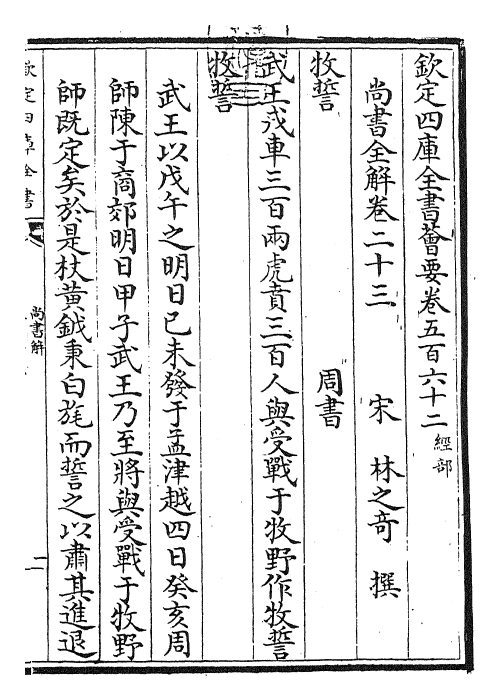 欽定四庫全書薈要卷五百六十二 經部
尚書全解卷二十三 宋 林之奇 撰
牧誓 周書
武王戎車三百兩虎賁三百人與受戰于牧野作牧誓
牧誓
武王以戊午之明日已未發于孟津越四日癸亥周
師陳于商郊明日甲子武王乃至將與受戰于牧野
師既定矣於是杖黄鉞秉白旄而誓之以肅其進退
欽定四庫全書
尚書解